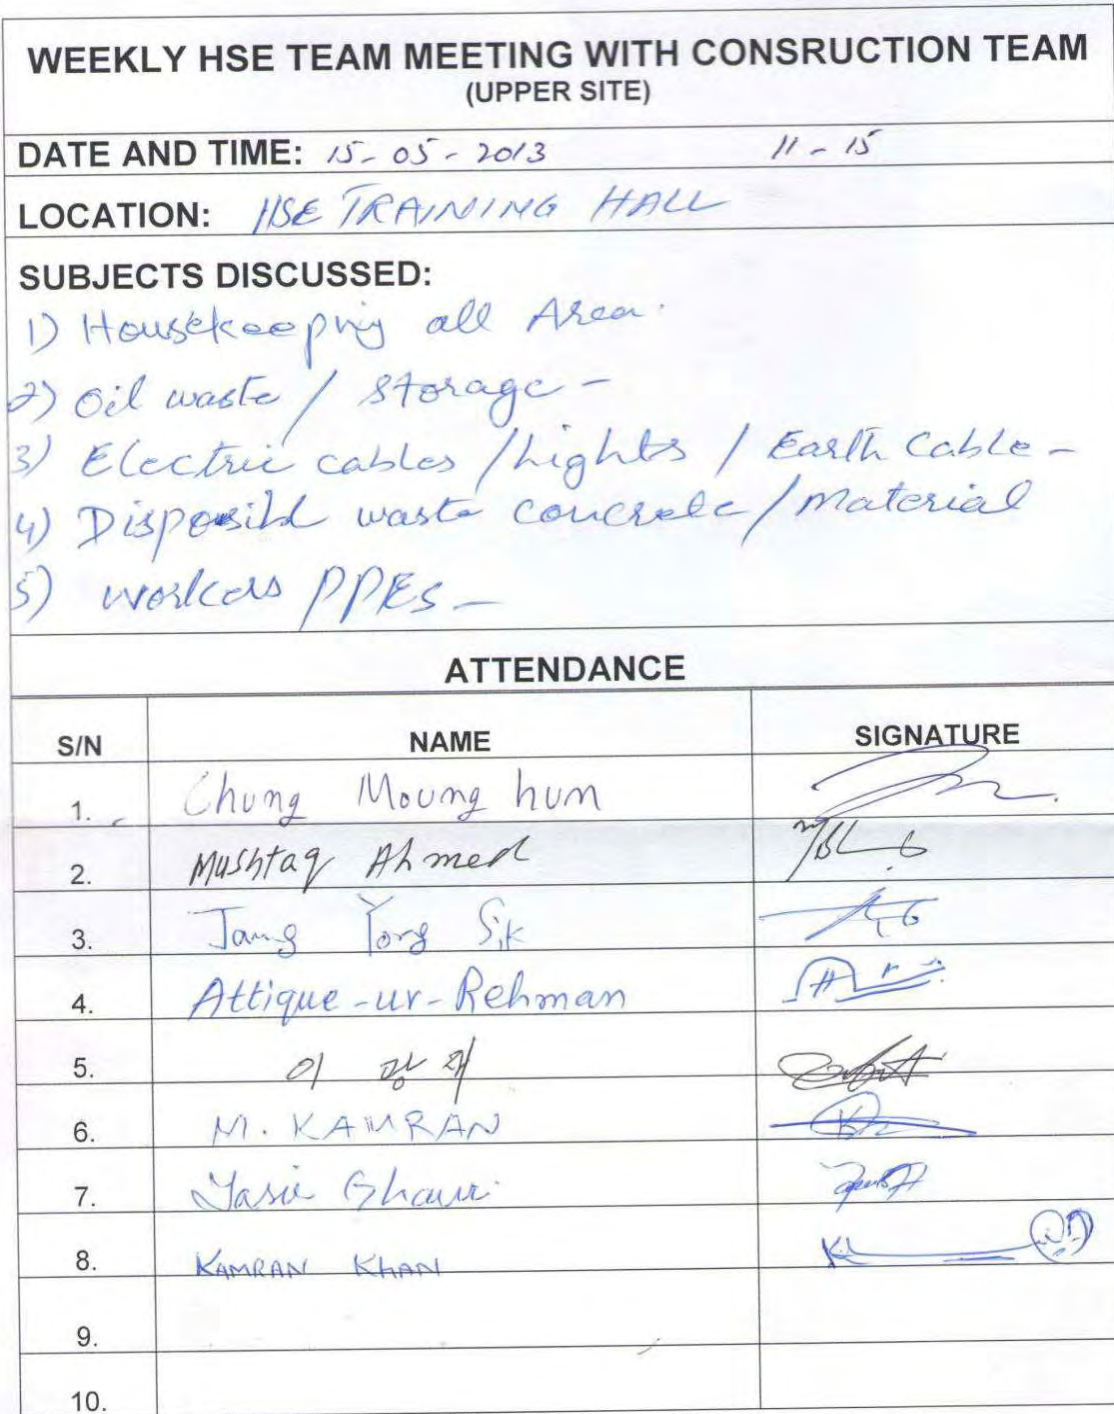 WEEKLY HSE TEAM MEETING WITH CONSRUCTION TEAM
(UPPER SITE)
DATE AND TIME: 15-05-2013 11-15
LOCATION: HSE TRAINING HALL
SUBJECTS DISCUSSED:
1) Housekeeping all Area.
2) Oil waste / Storage -
3) Electric cables / Lights / Earth Cable -
4) waste concrete / Material
5) workers PPEs -
ATTENDANCE
S/N NAME SIGNATURE
1. Chung Moung hum
2. Mushtaq Ahmed
3. Jang Yong Sik
4. Attique-ur-Rehman
5. 이 광
6. M. KAMRAN
7. Yasir
8. KAMRAN KHAN
9.
10.